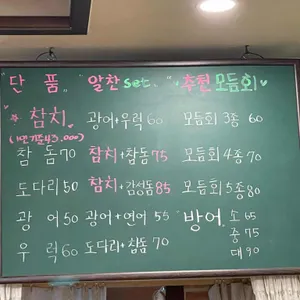 "단 품" "알찬 set." "추천 모듬회"
* 참치 광어+우럭 60 모듬회 3종 60
(1인기준 43,000)
참 돔 70 참치+참돔 75 모듬회 4종 70
도다리 50 참치+감성돔 85 모듬회 5종 80
광 어 50 광어+연어 55 "방어" 소 65
중 75
우 럭 60 도다리+참돔 70 대 90